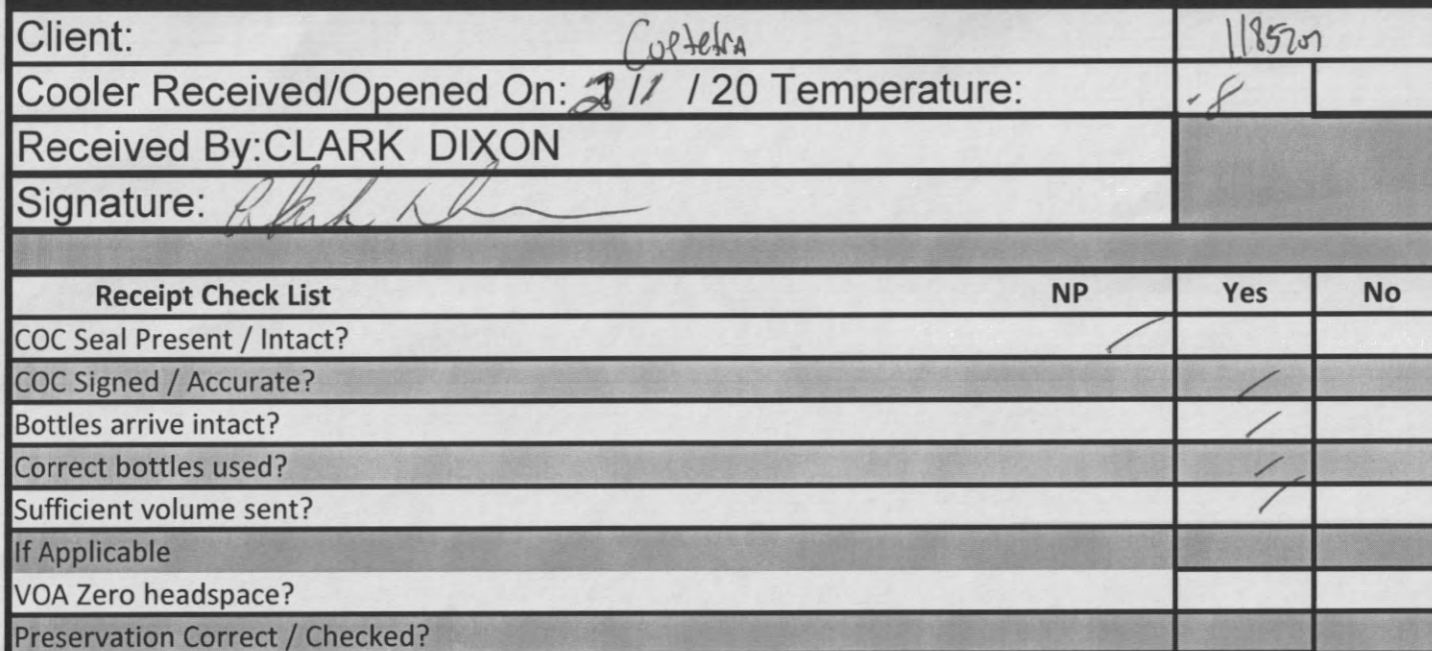 Client: 
Cooler Received/Opened On: 2/1 / 20 Temperature: -8
Received By:CLARK DIXON
Signature:
Receipt Check List NP Yes No
COC Seal Present / Intact?
COC Signed / Accurate?
Bottles arrive intact?
Correct bottles used?
Sufficient volume sent?
If Applicable
VOA Zero headspace?
Preservation Correct / Checked?